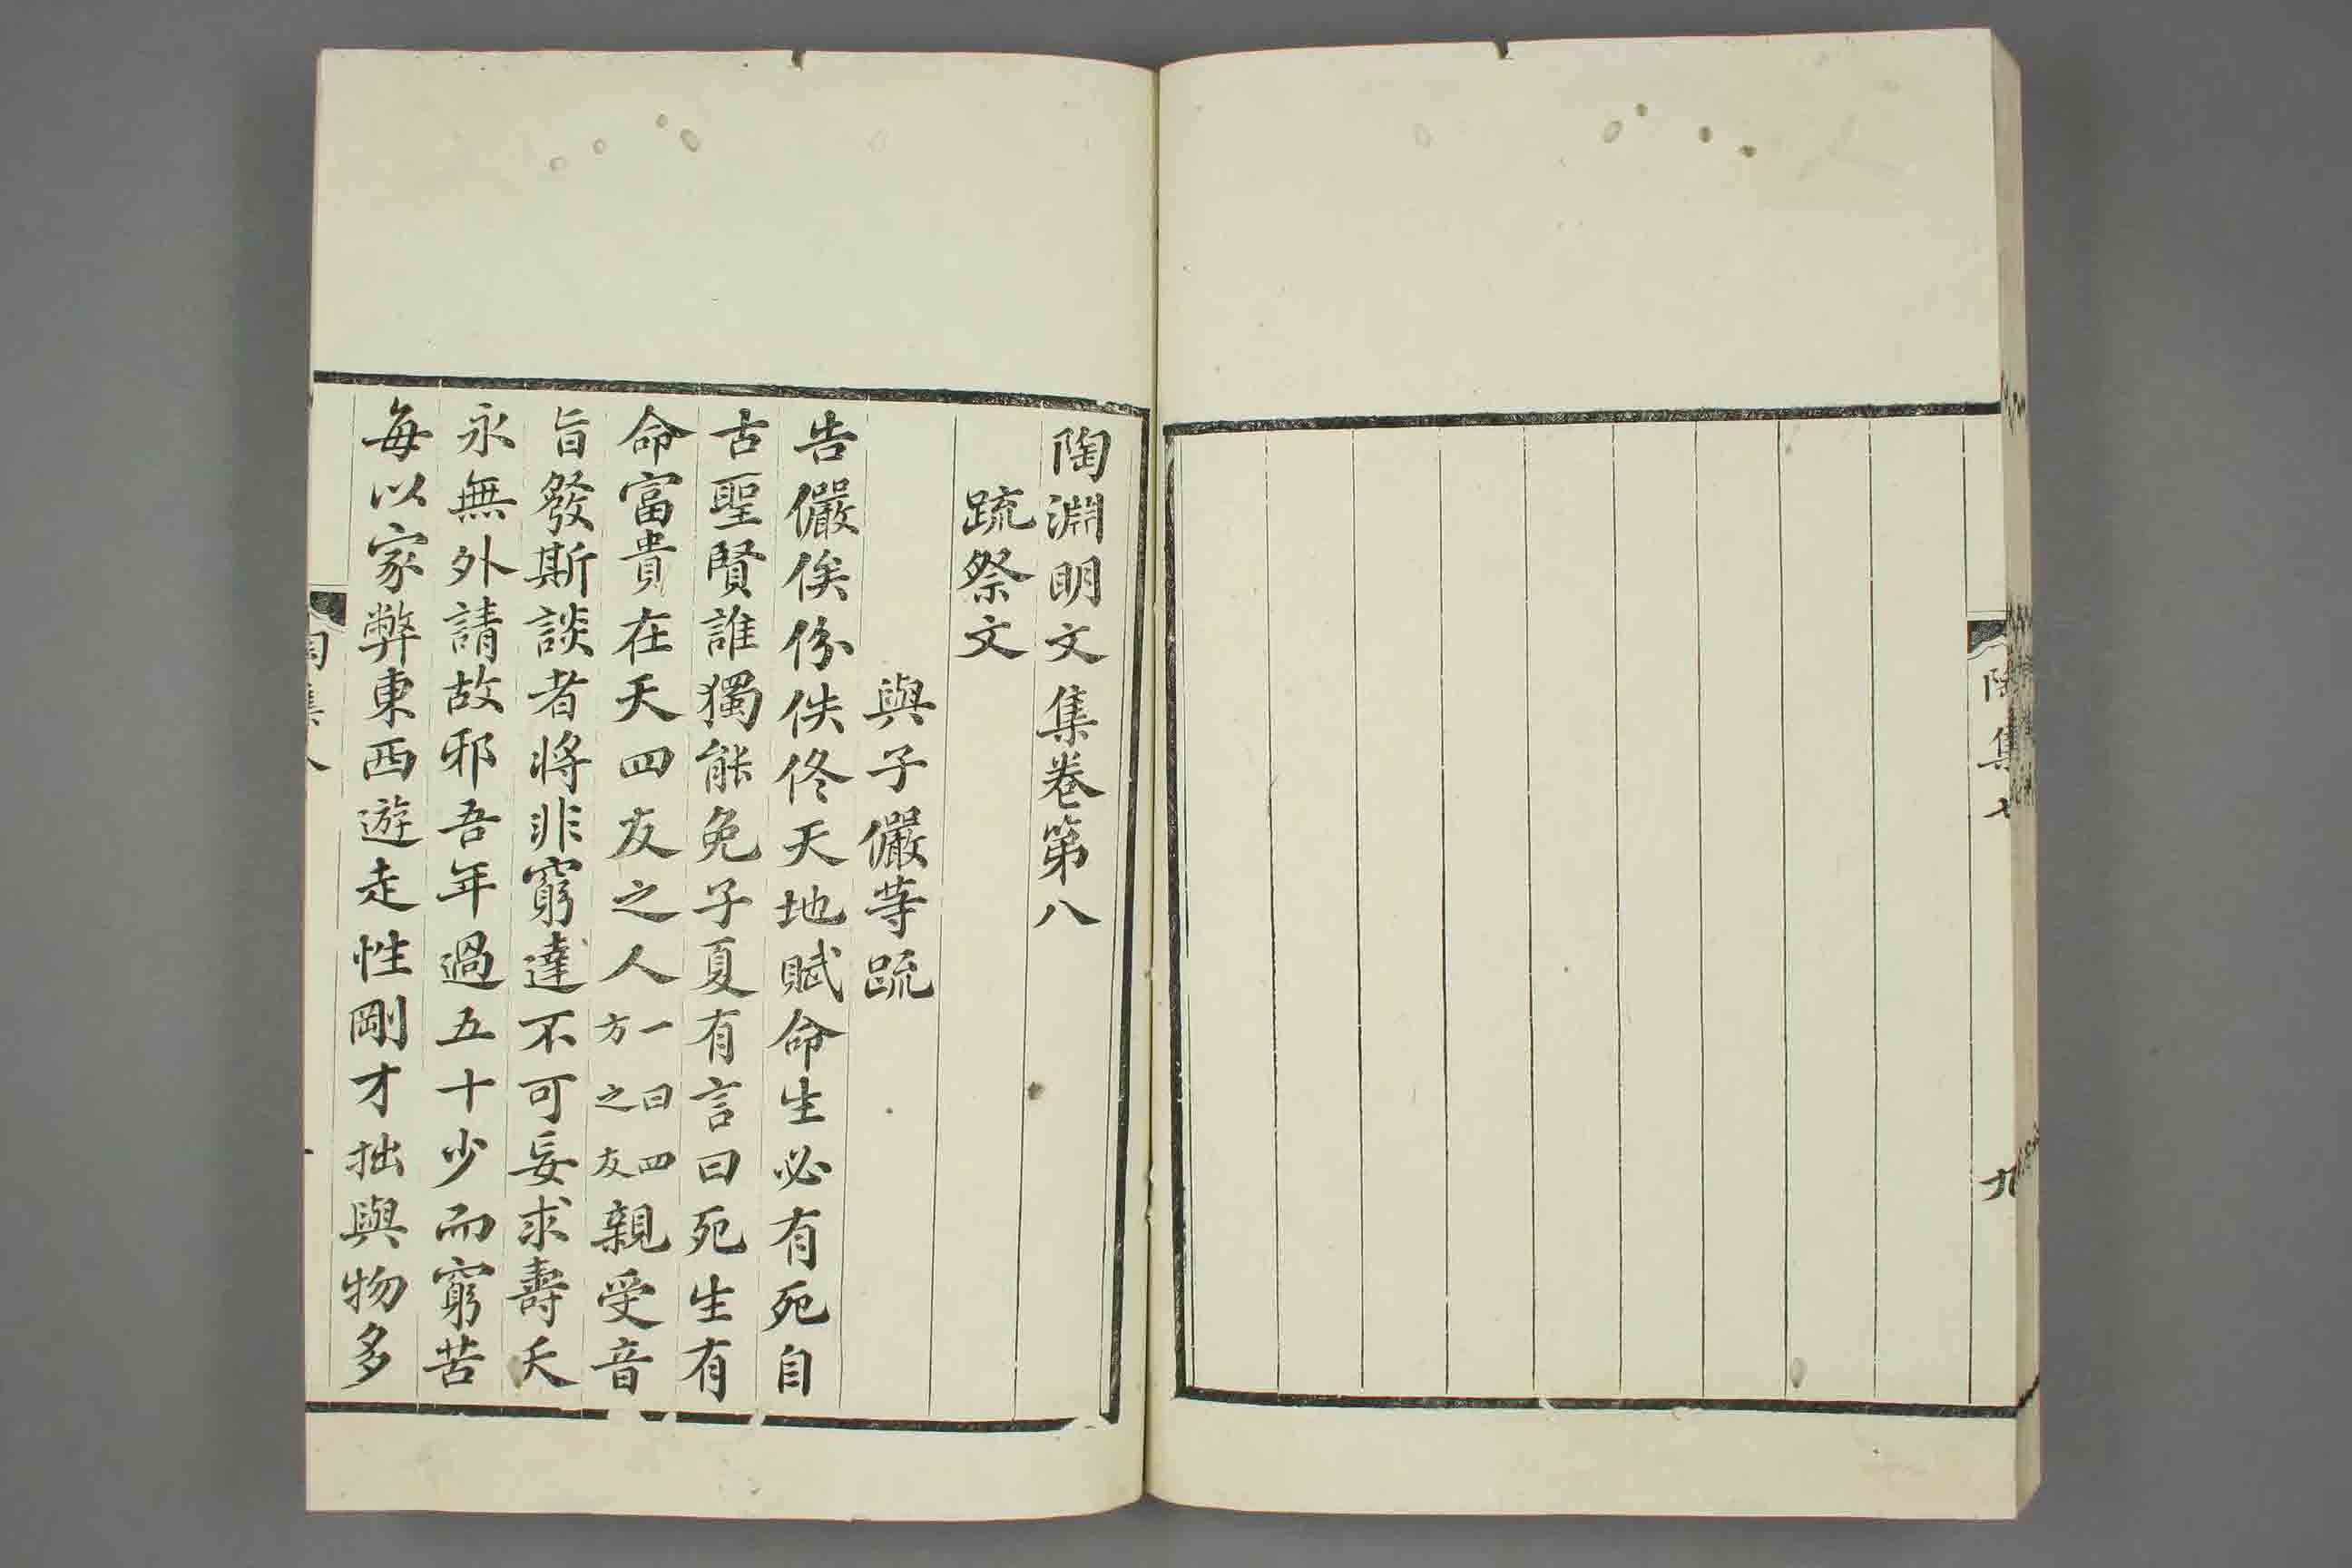 陶集
九
陶淵明文集卷第八
䟽祭文
與子儼等䟽
告儼俟份佚佟天地賦命生必有死自
古聖賢誰獨能免子夏有言曰死生有
命富貴在天四友之人一曰四方之友親受音
旨發斯談者將非窮達不可妄求壽夭
永無外請故邪吾年過五十少而窮苦
每以家弊東西遊走性剛才拙與物多